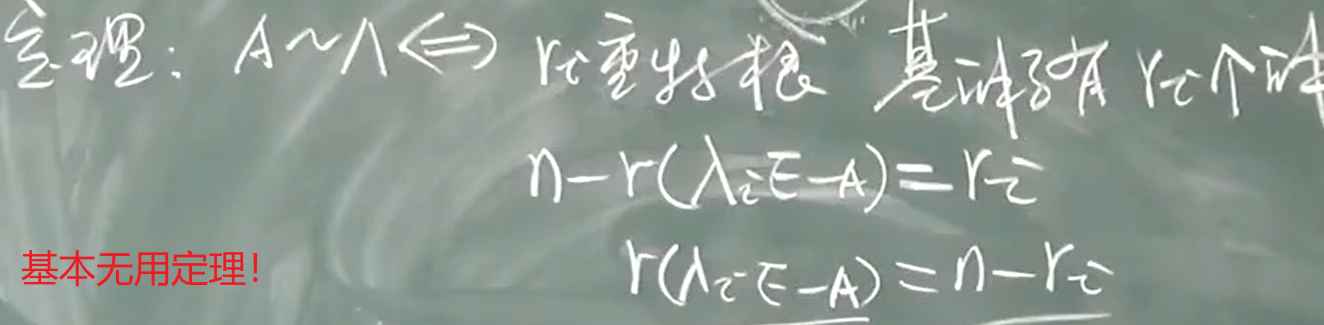 定理: A~Λ⇔ rᵢ重特根 基础解有 rᵢ个解
n-r(λᵢE-A)=rᵢ
r(λᵢE-A)=n-rᵢ
基本无用定理!